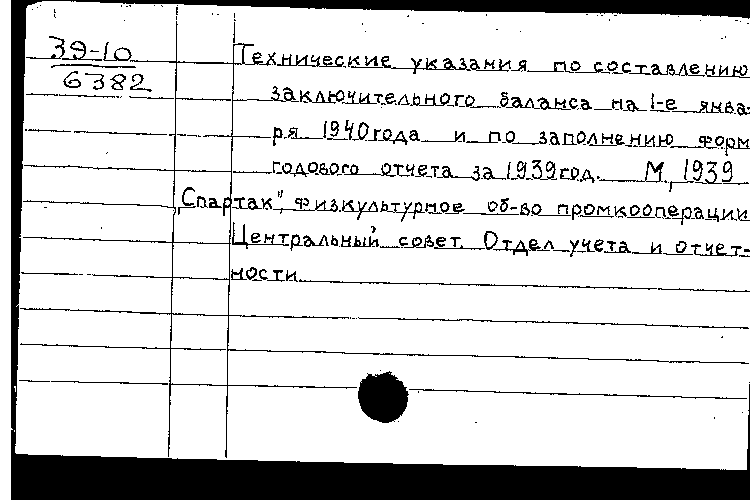 39-10
6382
Технические указания по составлению
заключительного баланса на 1-е янва-
ря 1940 года и по заполнению форм
годового отчета за 1939 год. М, 1939
„Спартак", физкультурное об-во промкооперации
Центральный совет. Отдел учета и отчет-
ности